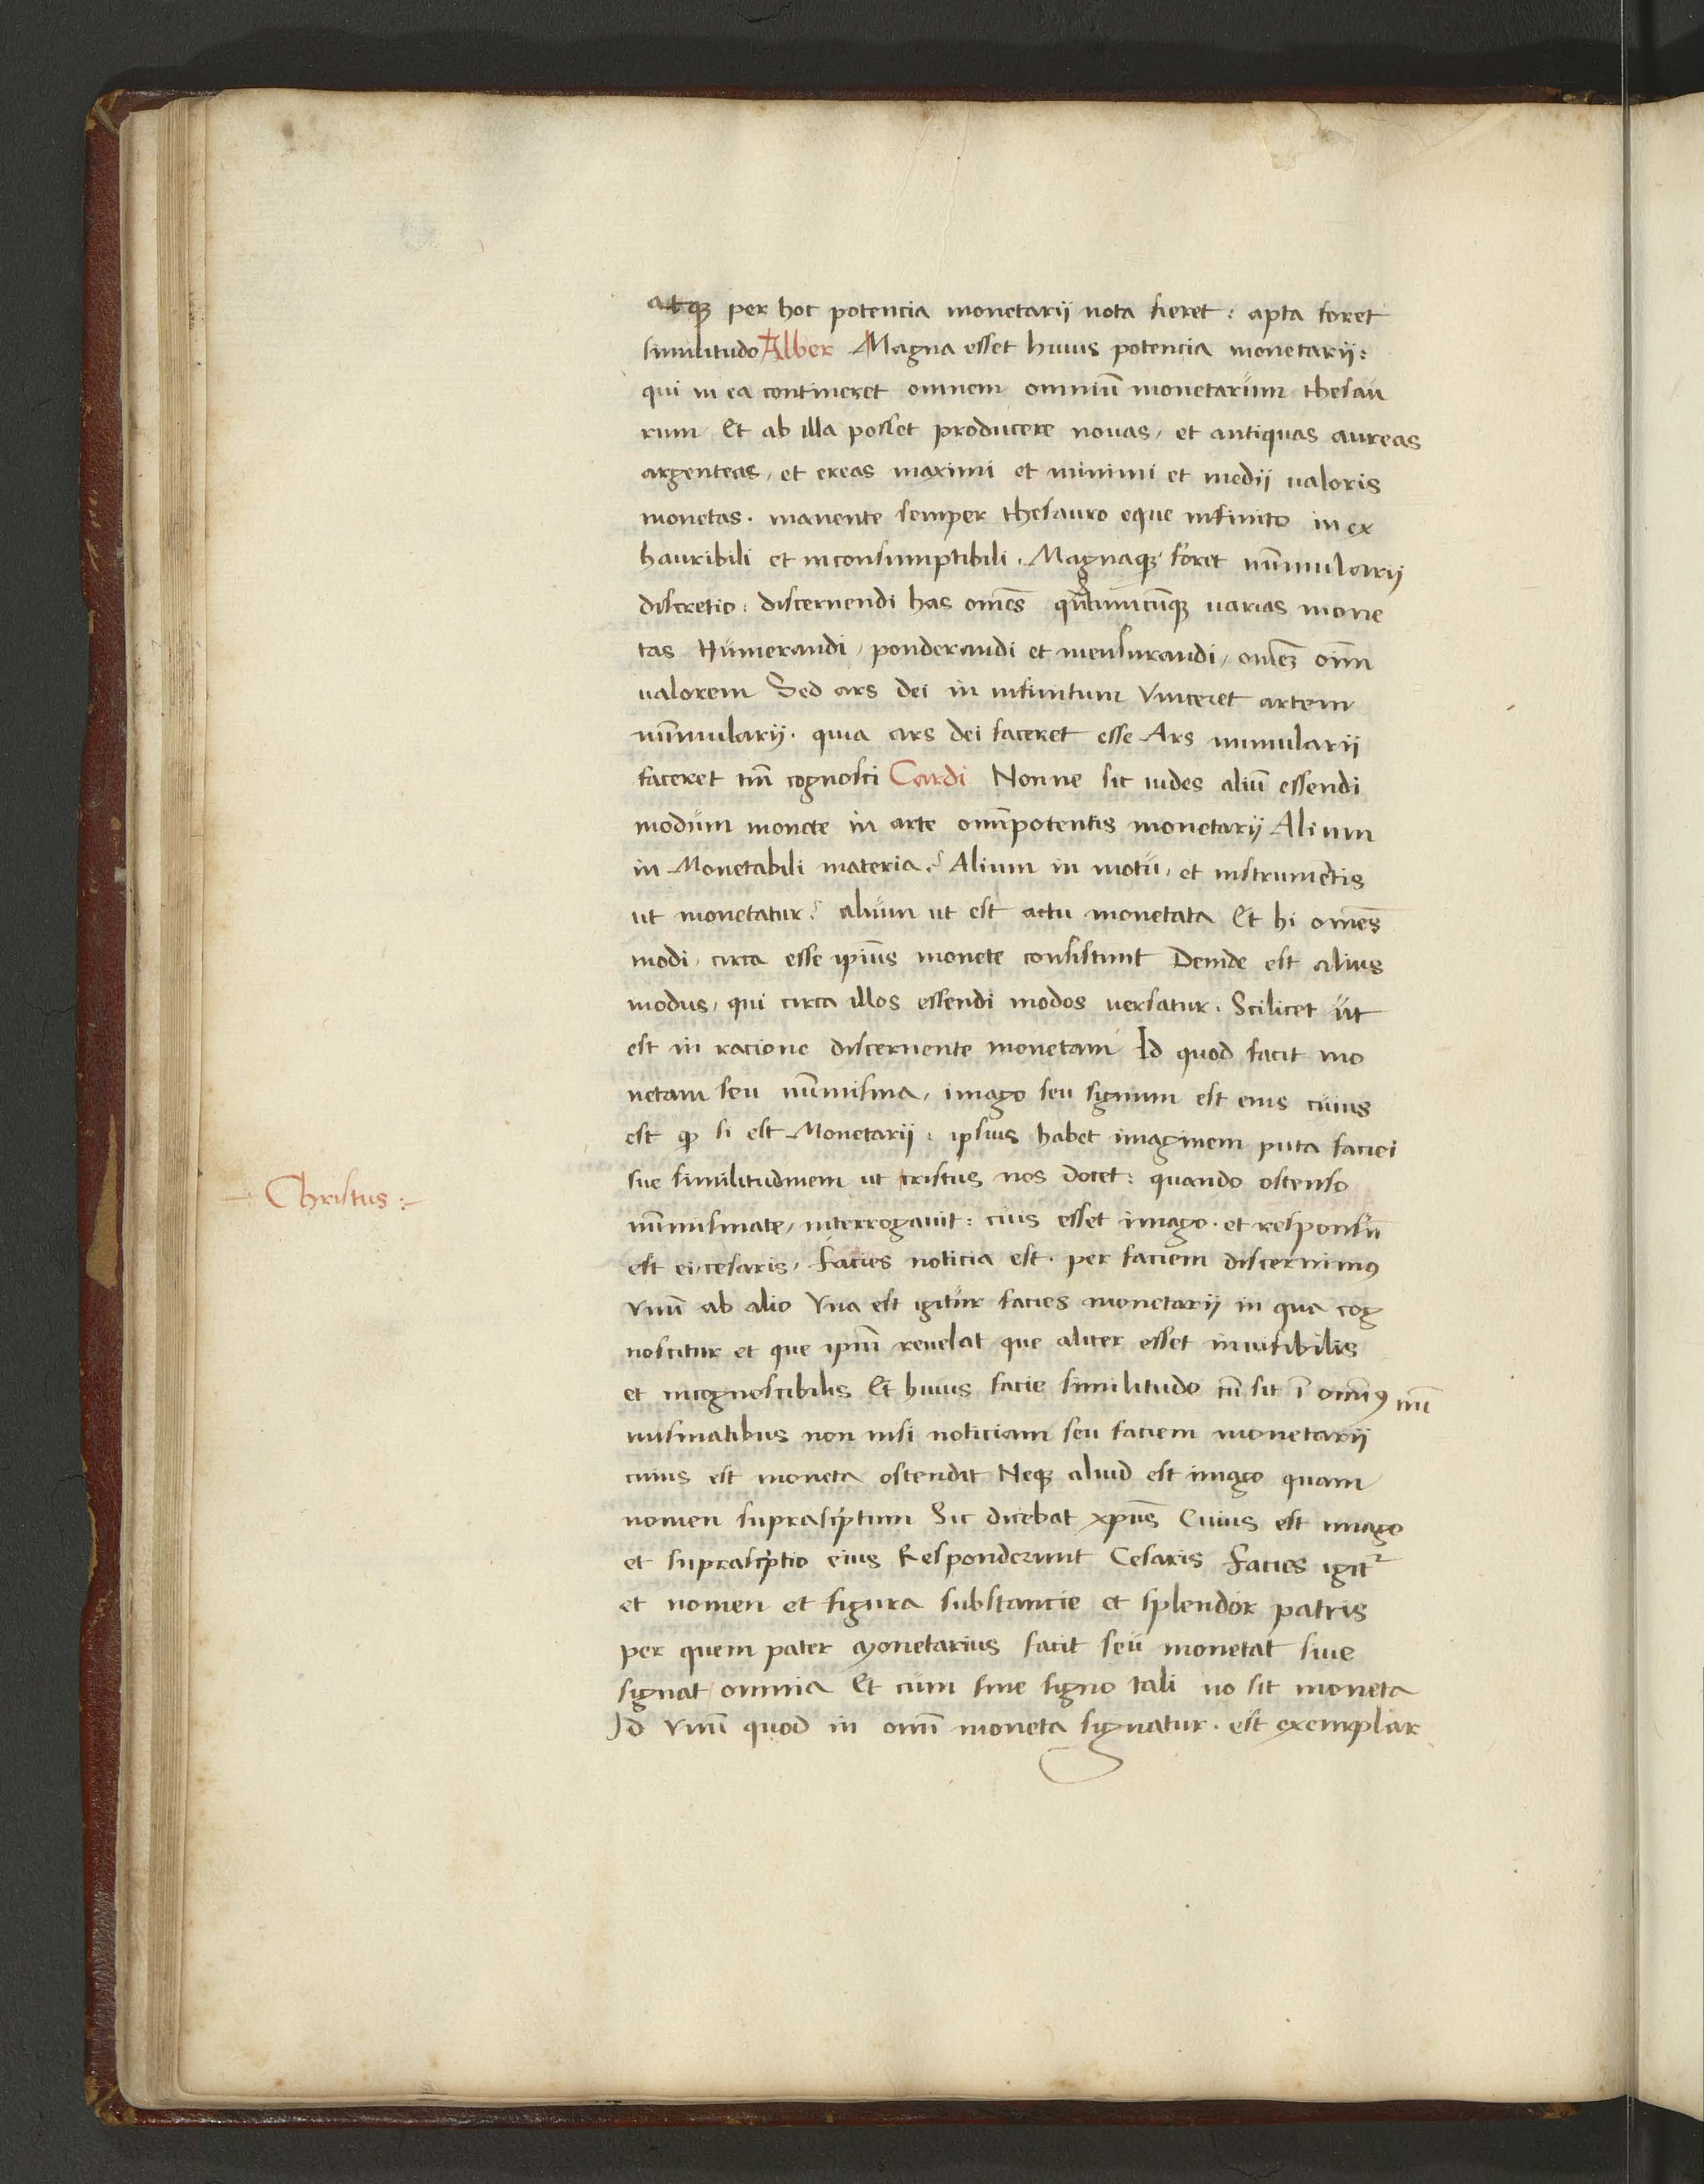 atqꝫ per hoc potencia monetarij nota fieret : apta foret
similitudo Alber Magna esset huius potencia monetarij :
qui in ea contineret omnem omniū monetarum thesau
rum Et ab illa posset producere nouas, et antiquas aureas
argenteas, et ereas maximi et minimi et medij ualoris
monetas . manente semper thesauro eque infinito in ex
hauribili et inconsumptibili . Magnaqꝫ foret nūmularij
discretio : discernendi has om̄es quātumcūqꝫ uarias mone
tas Numerandi, ponderandi et mensurandi, om̄eꝫ oīm
ualorem Sed ars dei in infinitum vinceret artem
nūmularij . quia ars dei faceret esse Ars numularij
faceret tm̄ cognosci Cardi Nonne sic uides aliū essendi
modum monete in arte omīpotentis monetarij Alium
in Monetabili materia ? Alium in motu, et instrumētis
ut monetatur ? alium ut est actu monetata Et hi om̄es
modi, circa esse ip̄ius monete consistunt Deinde est alius
modus, qui circa illos essendi modos uersatur . Scilicet ut
est in racione discernente monetam Id quod facit mo
netam seu nūmisma, imago seu signum est eius cuius
est qꝫ si est Monetarij : ipsius habet imaginem puta faciei
sue similitudinem ut cristus nos docet : quando ostenso
nūmismate, interrogauit : cuius esset imago . et responsū
est ei, cesaris, Facies noticia est . per faciem discernimꝰ
vnū ab alio Vna est igitur facies monetarij in qua cog
noscitur et que ip̄m reuelat que aliter esset inuisibilis
et incognoscibilis Et huius facie similitudo cū sit ī om̄ibꝰ nū
mismatibus non nisi noticiam seu faciem monetarij
cuius est moneta ostendit Neqꝫ aliud est imago quam
nomen suprascͥptum Sic dicebat xp̄us Cuius est imago
et suprascͥptio eius Responderunt Cesaris Facies igit̄
et nomen et figura substancie et splendor patris
per quem pater Monetarius facit seu monetat siue
signat omnia Et cum sine signo tali nō sit moneta
Id vnū quod in om̄i moneta signatur . est exemplar
Christus :